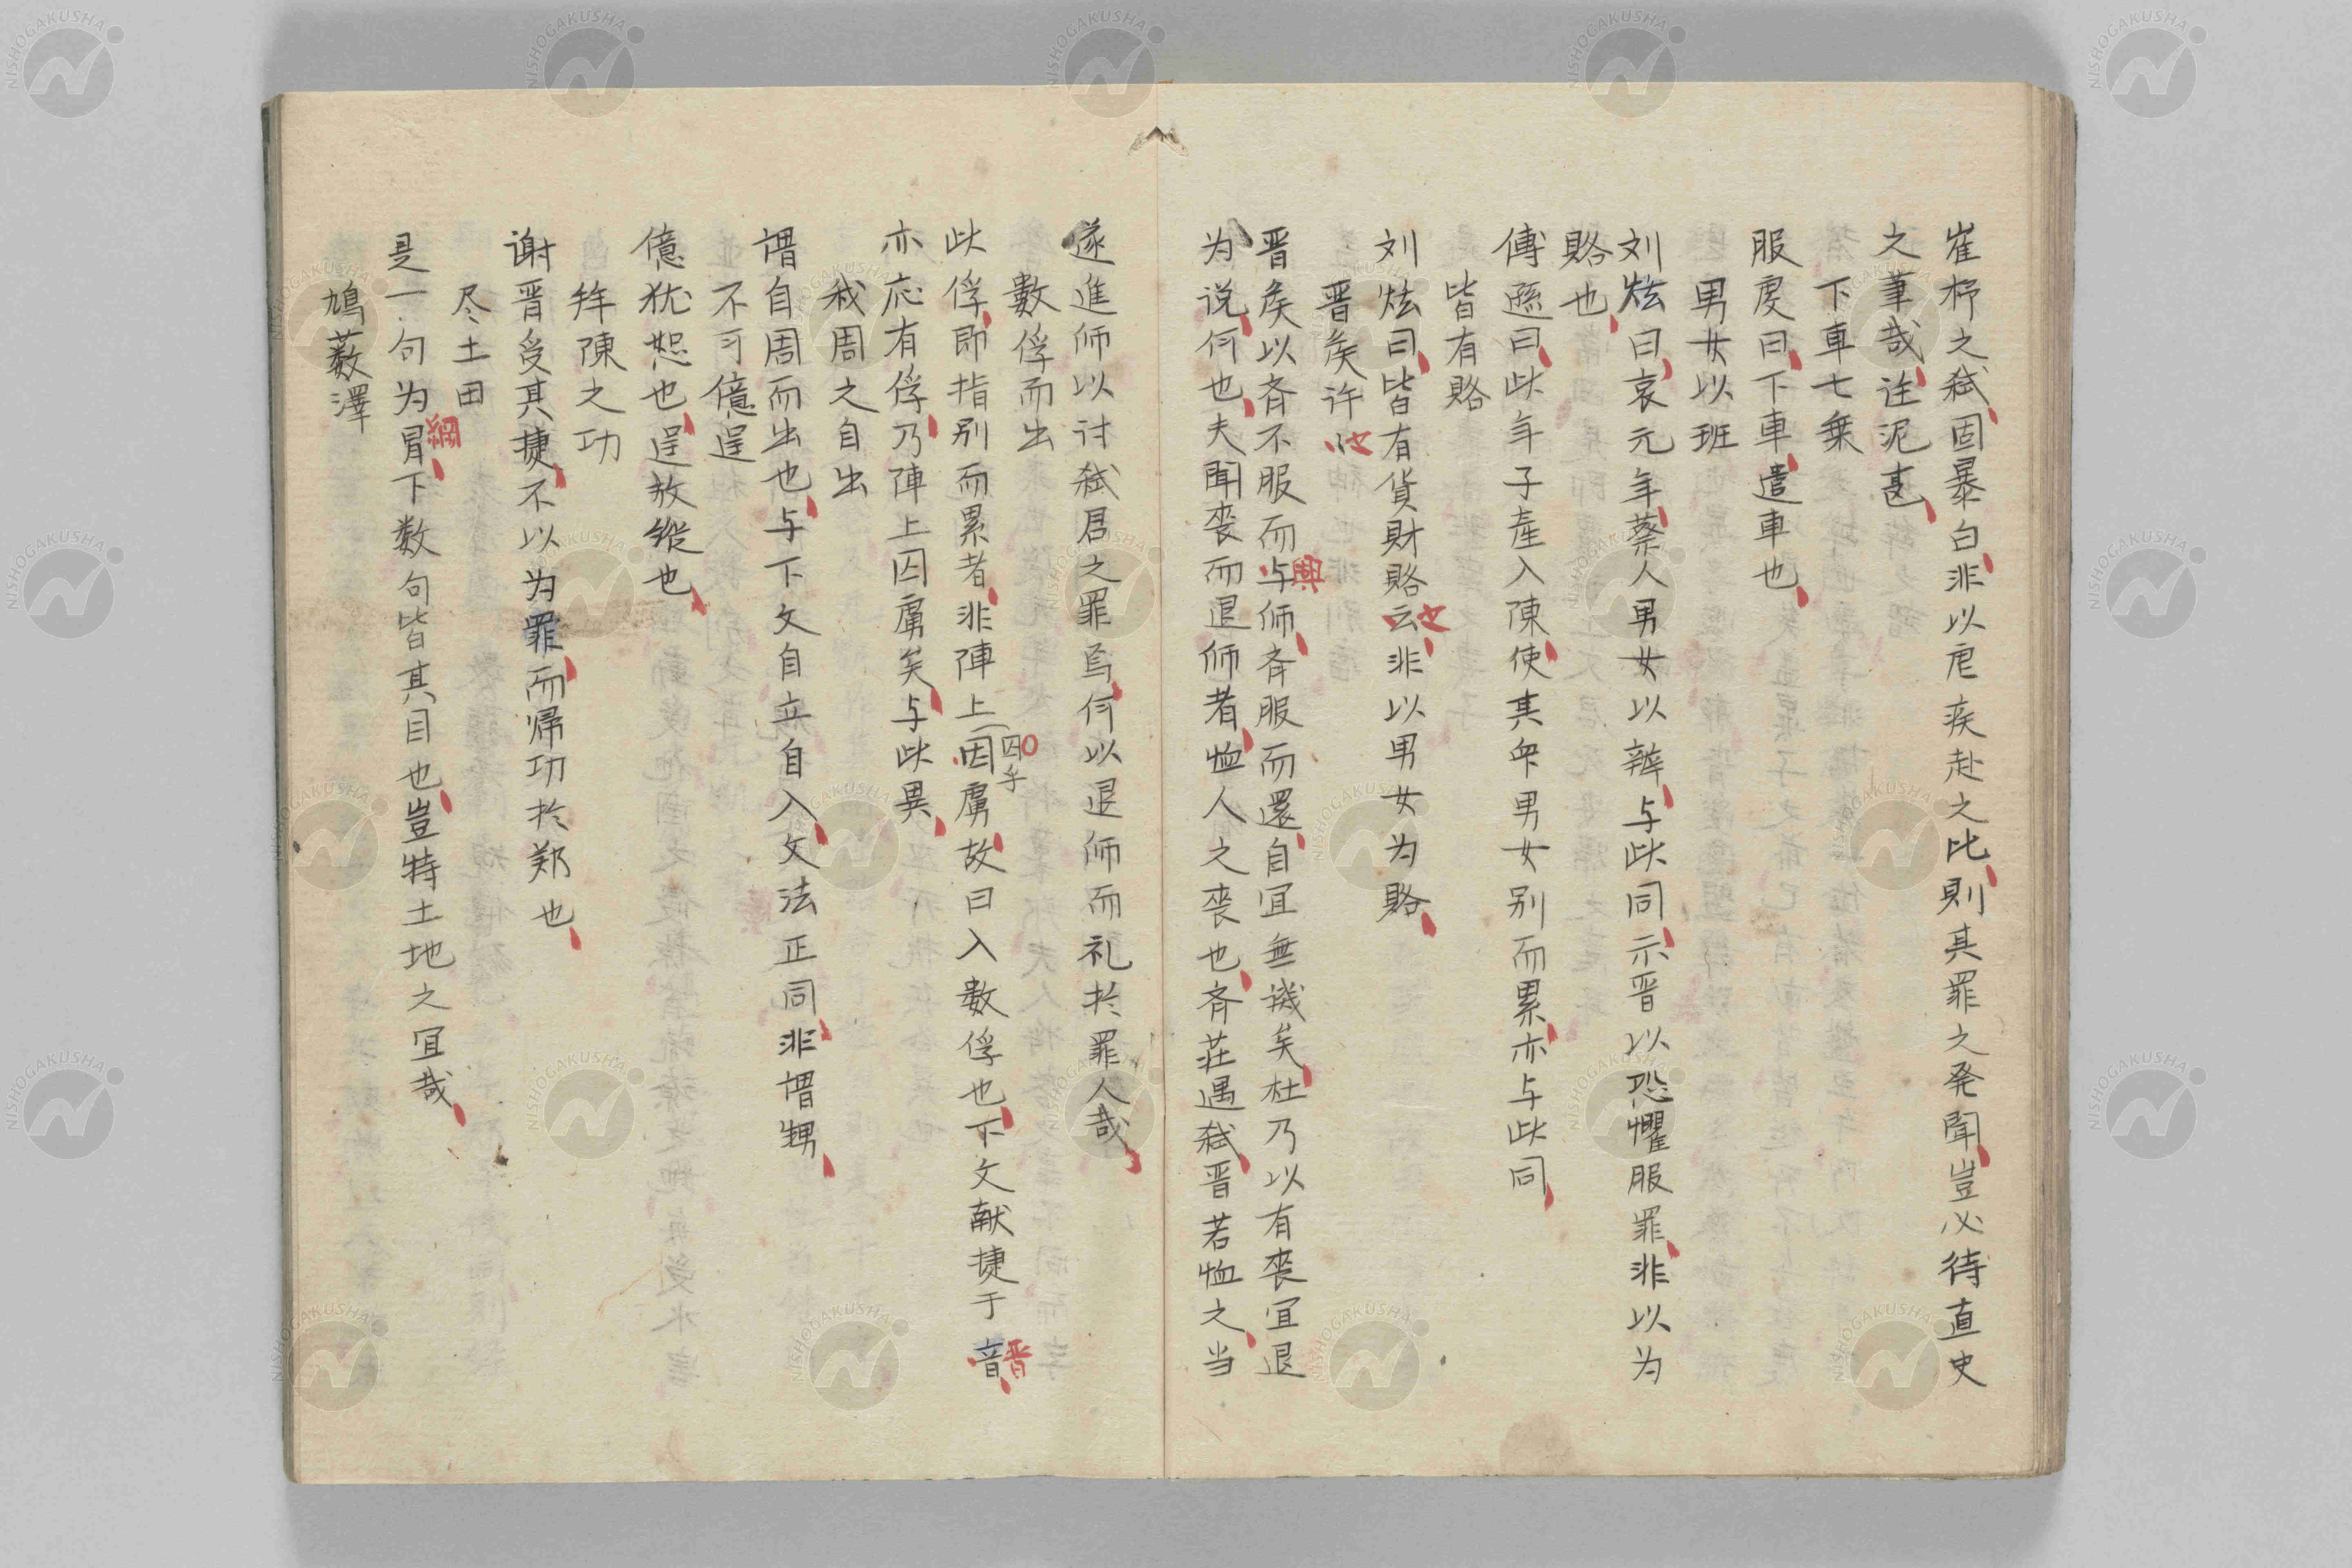 崔杼之弒、固暴白、非以虐疾赴之比、則其罪之発聞、豈必待直史
之筆哉、注泥甚、
下車七乗
服虔曰、下車、遣車也、
男女以班
刘炫曰、哀元年、蔡人男女以辨、与此同、示晋以恐懼服罪、非以为
賂也、
傳遜曰、此年子産入陳、使其衆男女别而累、亦与此同、
皆有賂
刘炫曰、皆有貨財賂云、非以男女为賂、
晋矦许
晋矦以斉不服而与師、斉服而還、自宜無譏矣、杜乃以有喪宜退
興
为说、何也、夫聞喪而退師者、恤人之喪也、斉荘遇弒、晋若恤之、当
遂進師以讨弒君之罪焉、何以退師而礼於罪人哉、
數俘而出
此俘、即指别而累者、非陣上因虜、故曰入数俘也、下文献捷于音、
囚乎
晋
亦応有俘、乃陣上囚虜矣、与此異、
我周之自出
謂自周而出也、与下文自立自入、文法正同、非謂甥、
不可億逞
億犹恕也、逞放縦也、
䍧陳之功
谢晋受其捷、不以为罪、而帰功於郑也、
尽土田
是一句为冒、下数句皆其目也、豈特土地之宜哉、
綱
鳩藪澤
NISHOGAKUSHA